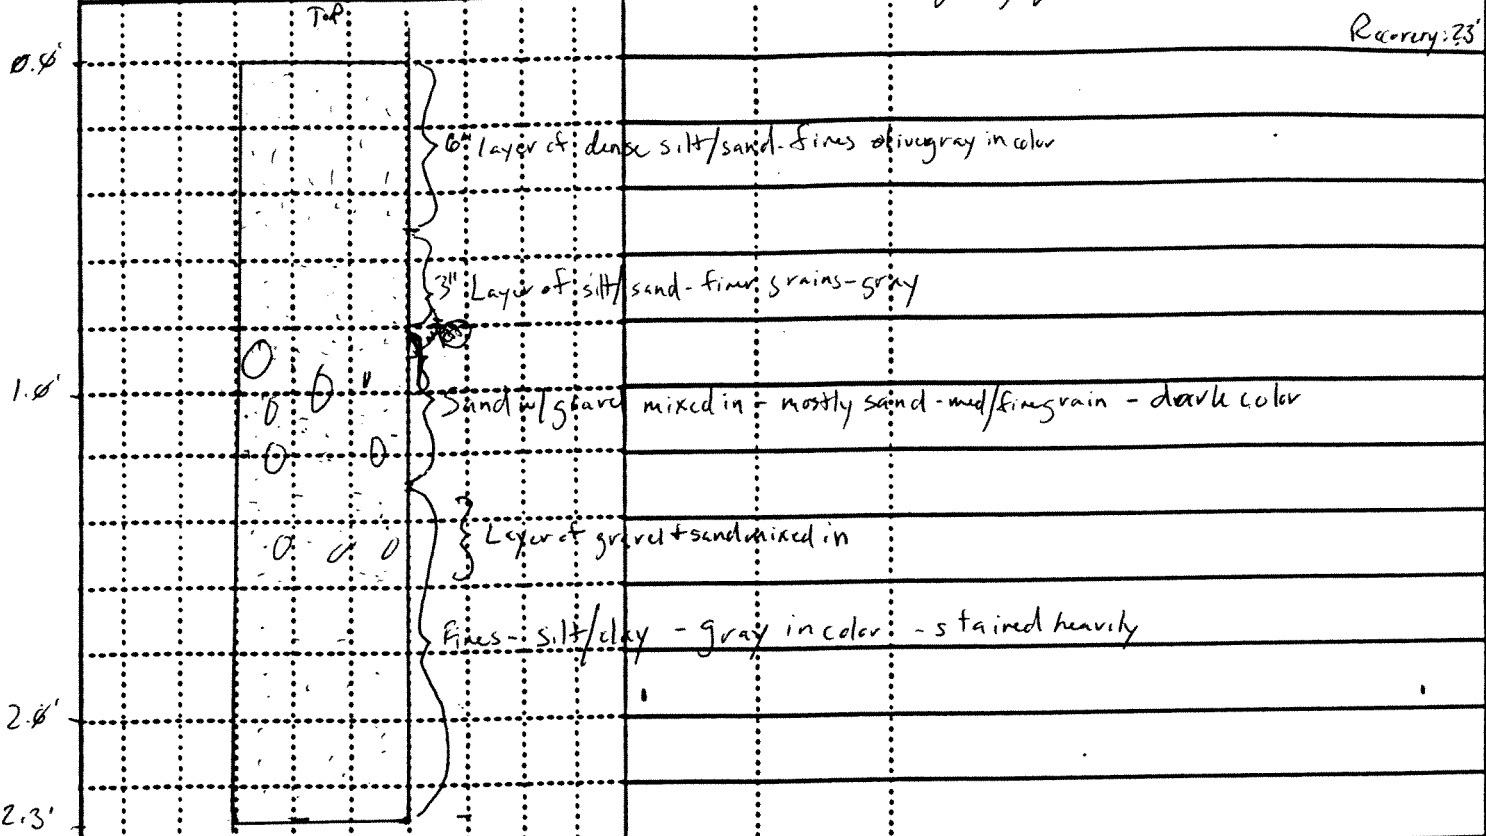 TOP
Recovery: 2.3'
0.0'
6" layer of dense silt/sand-fines olive gray in color
3" Layer of silt/sand - finer grains - gray
1.0'
Sand w/ gravel mixed in - mostly sand - med/fine grain - dark color
Layer of gravel + sand mixed in
Fines - silt/clay - gray in color - stained heavily
2.0'
2.3'